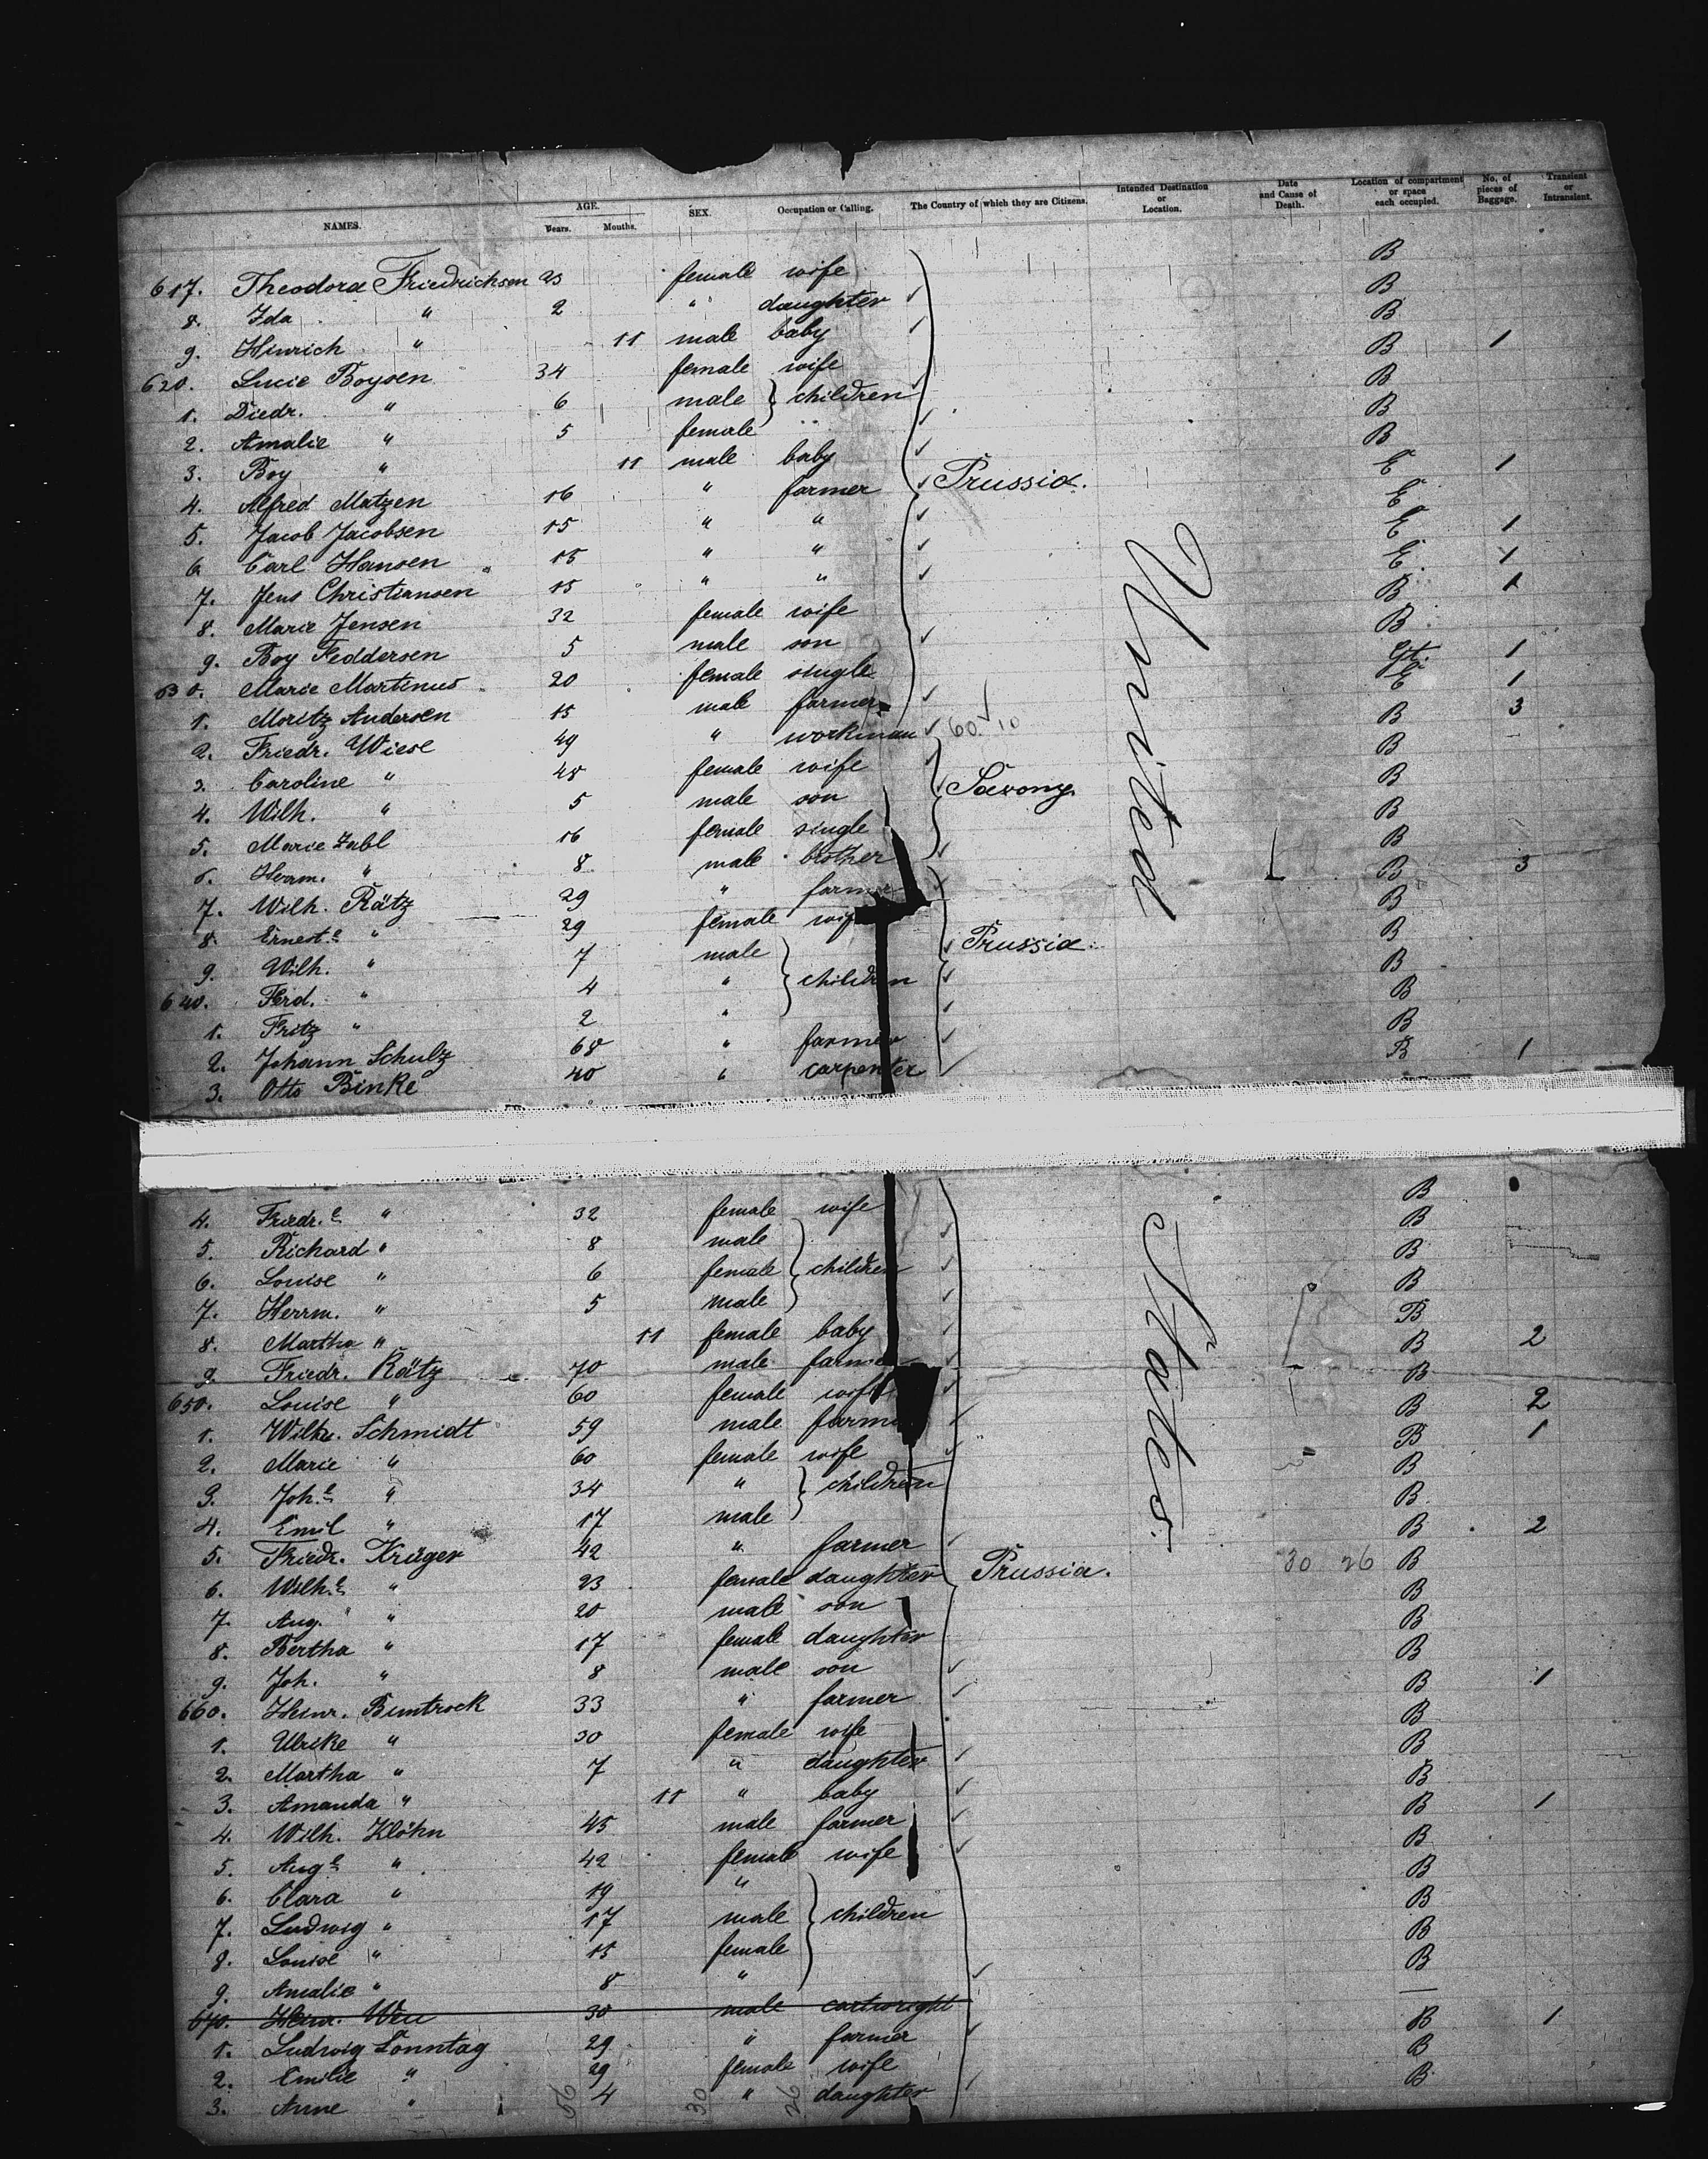 NAMES. AGE. Years. Months. SEX. Occupation or Calling. The Country of which they are Citizens. Intended Destination or Location. Date and Cause of Death. Location of compartment or space each occupied. No. of pieces of Baggage. Transient or Intransient.
617. Theodora Friedrichsen 23 female wife B
8. Ida " 2 " daughter B
9. Hinrich " 11 male baby B
620. Lucie Boysen 34 female wife B 1
1. Diedr. " 6 male } children B
2. Amalie " 5 female B
3. Boy " 11 male baby B
4. Alfred Matzen 16 " farmer Prussia. E 1
5. Jacob Jacobsen 15 " " E
6. Carl Hansen 15 " " E 1
7. Jens Christiansen 15 " " E 1
8. Marie Jensen 32 female wife B 1
9. Boy Feddersen 5 male son B
630. Marie Martinus 20 female single Gt. 1
1. Moritz Andersen 15 male farmer E 1
2. Friedr. Wiese 49 " workman 60. 10 B 3
3. Caroline " 48 female wife B
4. Wilh. " 5 male son Saxony B
5. Marie Zabl 16 female single B
6. Herm. " 8 male brother B
7. Wilh. Rätz 29 " farmer B 3
8. Ernest.e " 29 female wife B
9. Wilh. " 7 male } children Prussia B
640. Ferd. " 4 " B
1. Fritz " 2 " B
2. Johann Schulz 68 " farmer B
3. Otto Binke 40 " carpenter B 1
United
4. Friedr.e " 32 female wife B
5. Richard " 8 male B
6. Louise " 6 female } children B
7. Herrm. " 5 male B
8. Martha " 11 female baby B
9. Friedr. Rätz 70 male farmer B 2
650. Louise " 60 female wife B
1. Wilh. Schmidt 59 male farmer B 2
2. Marie " 60 female wife B 1
3. Joh.e " 34 " } children B
4. Emil " 17 male B
5. Friedr. Krüger 42 " farmer B 2
6. Wilh.e " 23 female daughter Prussia. 30 26 B
7. Aug. " 20 male son B
8. Bertha " 17 female daughter B
9. Joh. " 8 male son B
660. Heinr. Bumtrock 33 " farmer B 1
1. Ulrike " 30 female wife B
2. Martha " 7 " daughter B
3. Amanda " 11 " baby B
4. Wilh. Klöhn 45 male farmer B 1
5. Aug.e " 42 female wife B
6. Clara " 19 " B
7. Ludwig " 17 male } children B
8. Louise " 15 female B
9. Amalie " 8 " B
670. Heinr. 30 male cartwright —
1. Ludwig Sonntag 29 " farmer B 1
2. Emilie " 29 female wife B
3. Anne " 4 " daughter B
States.
56 30 26